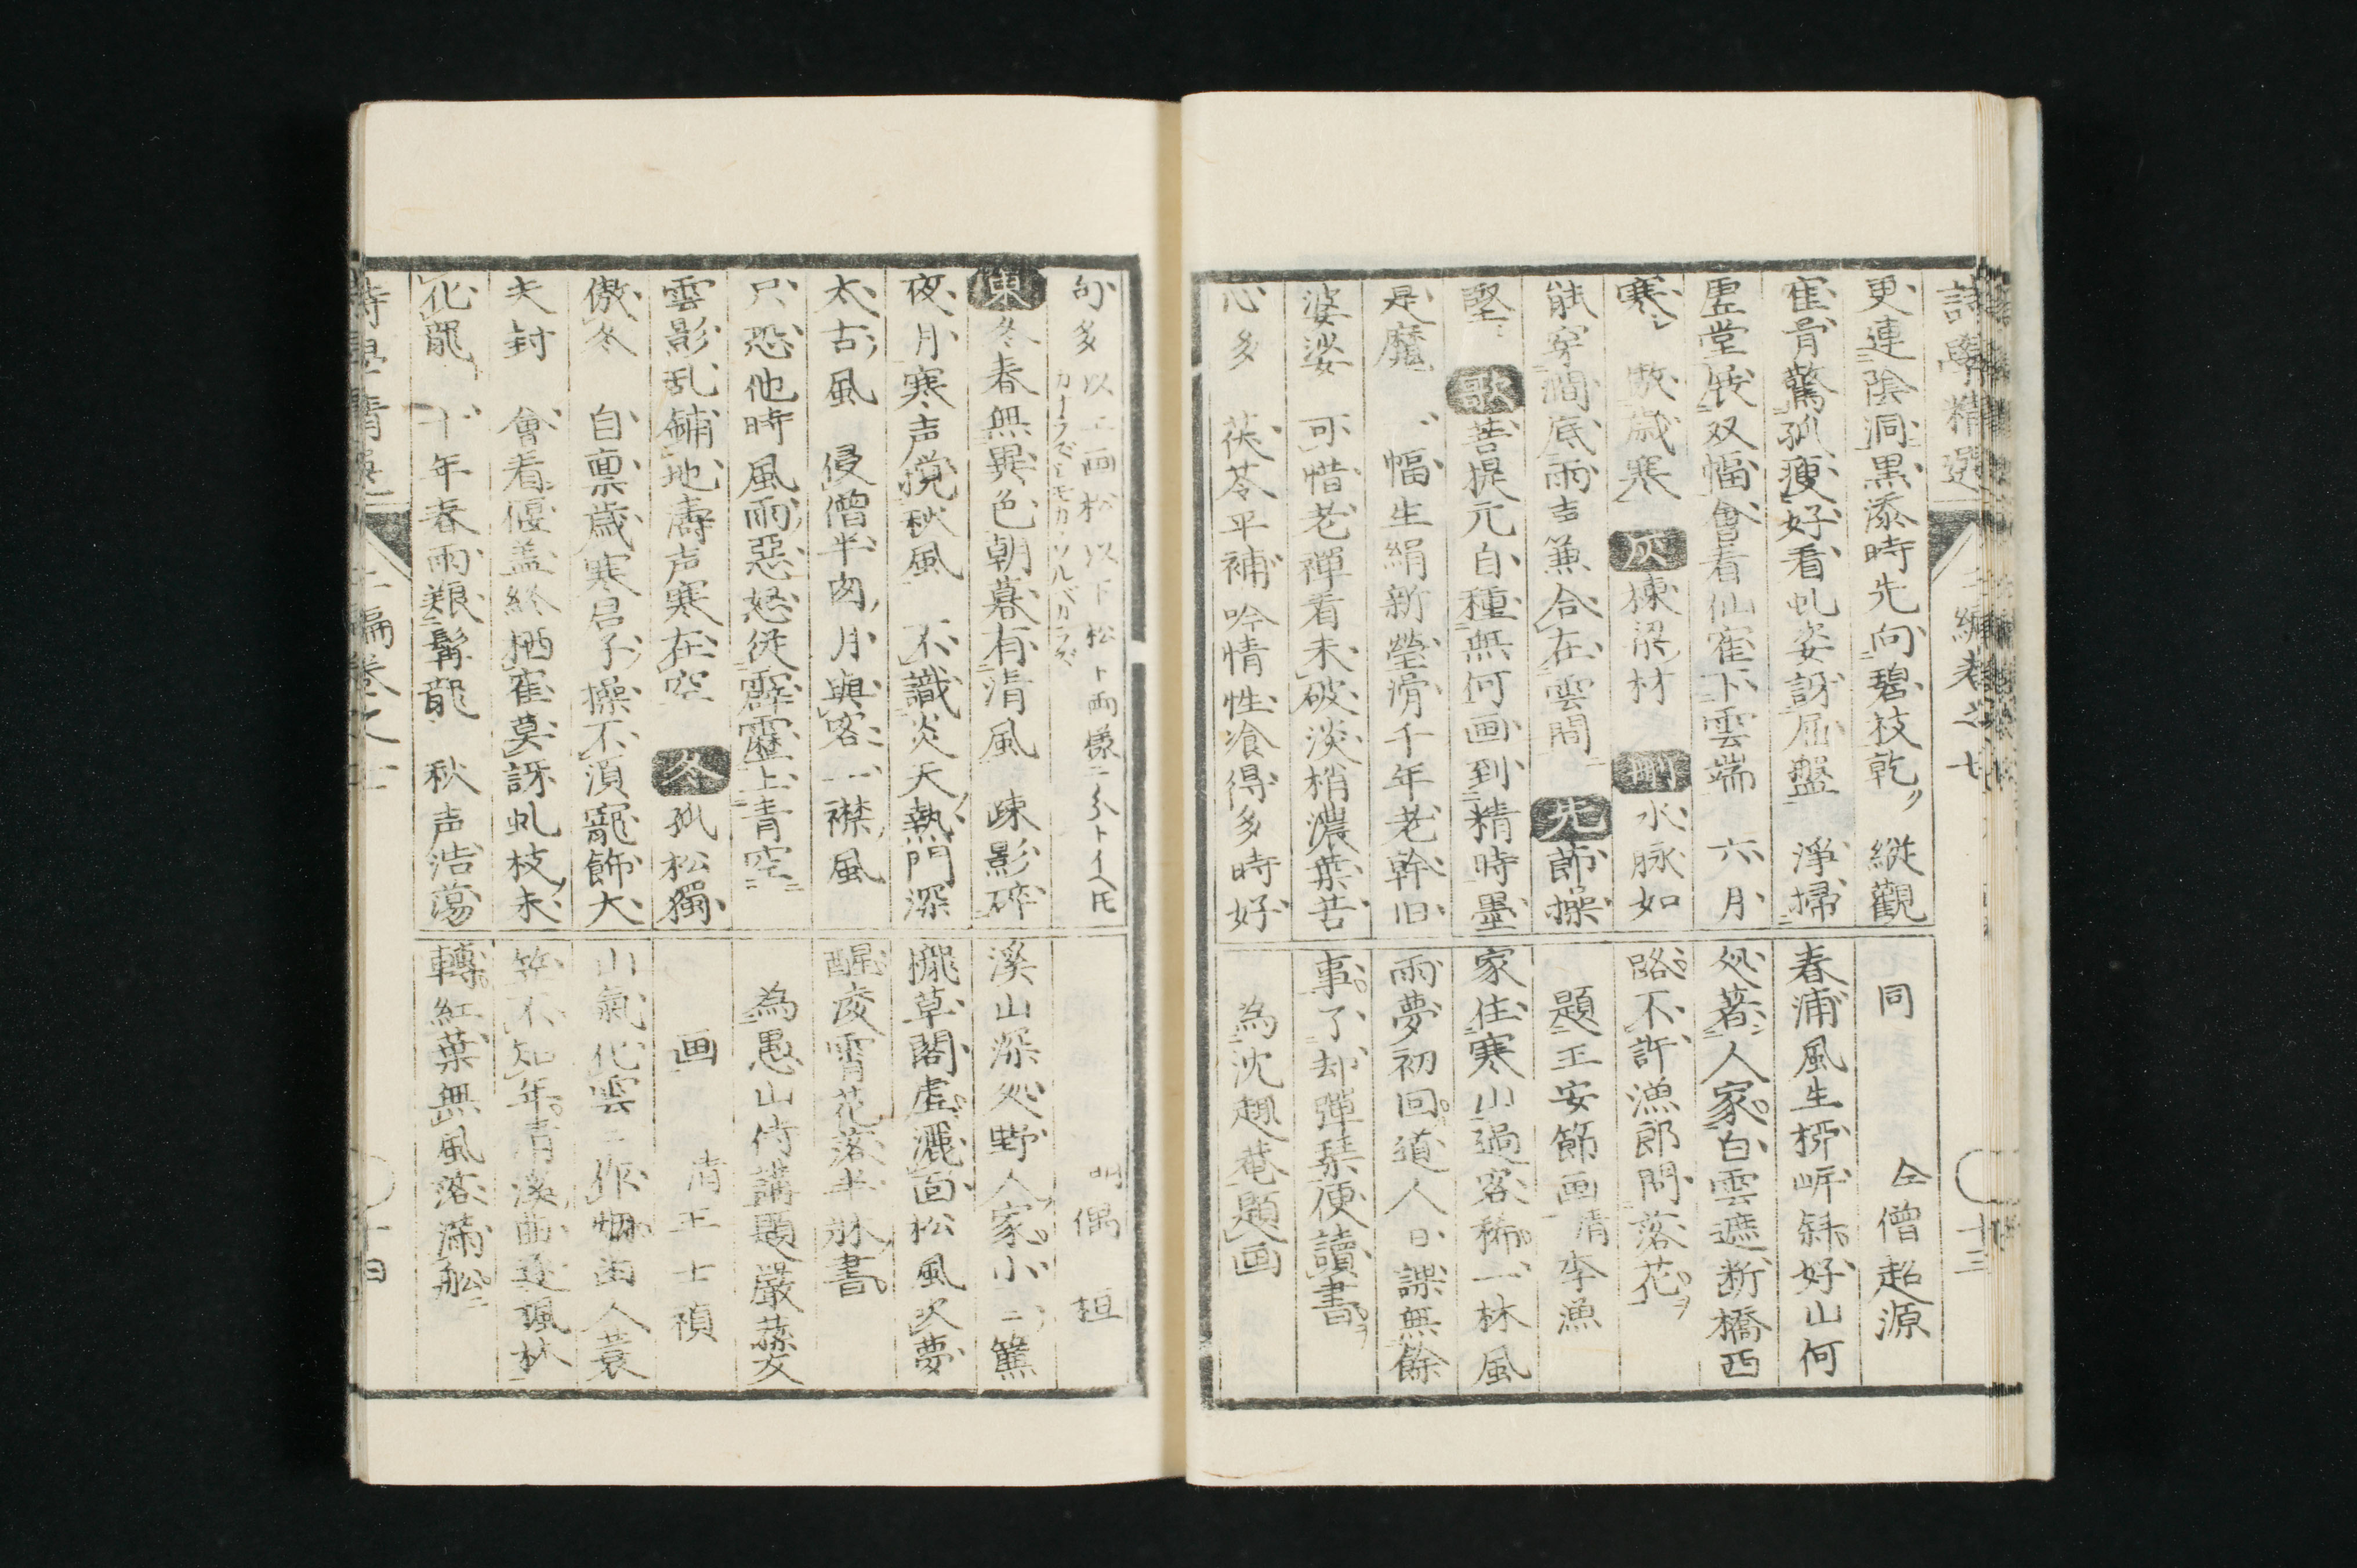 詩學精選 二編卷之七 十三
更連陰洞黒添時先向碧枝乾 縱觀
寉骨驚孤瘦好看虬姿訝屈盤 淨掃
虚堂展双幅會看仙寉下雲端 六月
寒 傲歳寒 灰 棟梁材 刪 水脉如
能穿澗底雨声兼合在雲間 先 節操
堅 歌 菩提元自種無何画到精時墨
是魔 幅生絹新瑩滑千年老幹旧
婆娑 可惜老禪看未破淡梢濃葉苦
心多 茯苓平補吟情性飡得多時好
同 仝僧超源
春浦風生桺岸斜好山何
処著人家白雲遮断橋西
路不許漁郎問落花
題王安節画 清李漁
家住寒山過客稀一林風
雨夢初回道人日課無餘
事了却彈琹便讀書
為沈趣菴題画
句多以上画松以下松ト両様ニ分ト イヘ𪜈
東 冬春無異色朝暮有清風 疎影碎
夜月寒声攪秋風 不識炎天熱門深
太古風 侵僧半肉月與客一襟風
只恐他時風雨惡怒従霹靂上青空
雲影乱鋪地濤声寒在空 冬 孤松獨
傲冬 自禀歳寒君子操不湏寵飾大
夫封 會看偃盖終栖寉莫訝虬枝未
化龍 十年春雨養髯龍 秋声浩蕩
明偶桓
溪山深処野人家小ニ篱
櫳草閣虚灑面松風吹夢
醒凌霄花落半牀書
為愚山侍講題嚴蓀友
画 清王士禎
山氣化雲ニ作烟幽人蓑
笠不知年青溪曲逐颯林
轉紅葉無風落滿舩